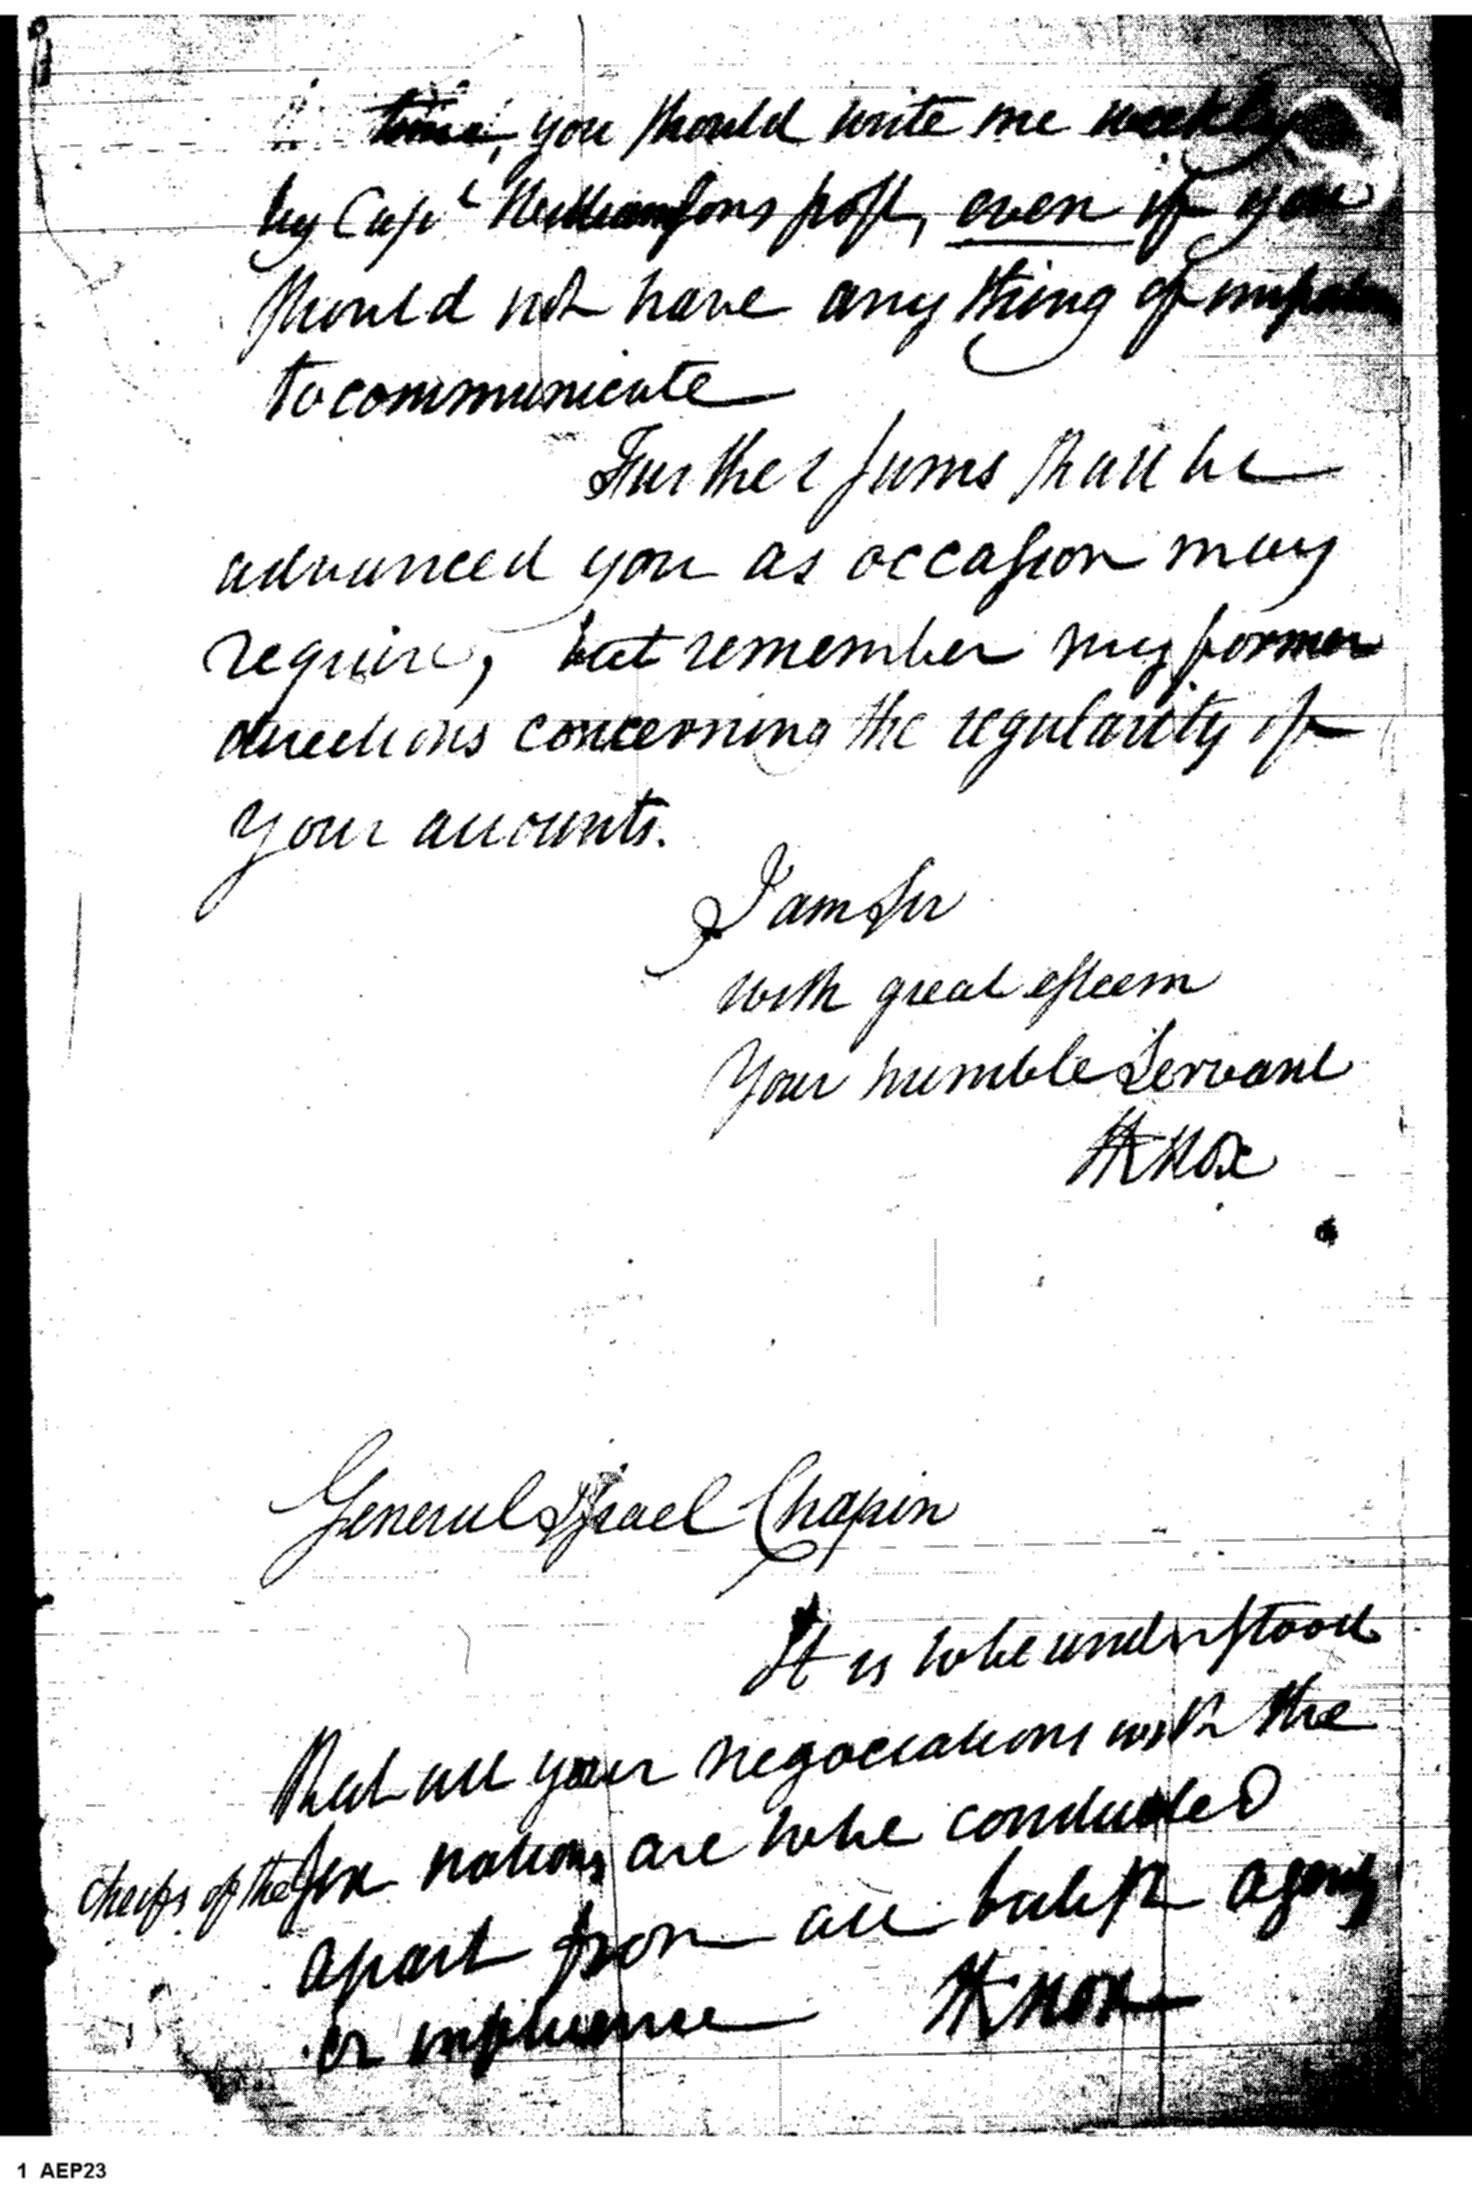 time, you should write me weekly
by Capt Williamsons post, even if you
should not have any thing of
to communicate
Further sums shall be
advanced you as occasion may
require, but remember my former
directions concerning the regularity of
your accounts.
I am Sir
with great esteem
Your humble Servant
HKnox
General Israel Chapin
It is to be understood
that all your negociations with the
cheifs of the six nations are to be conducted
apart from all british agency
or influence HKnox
1 AEP23